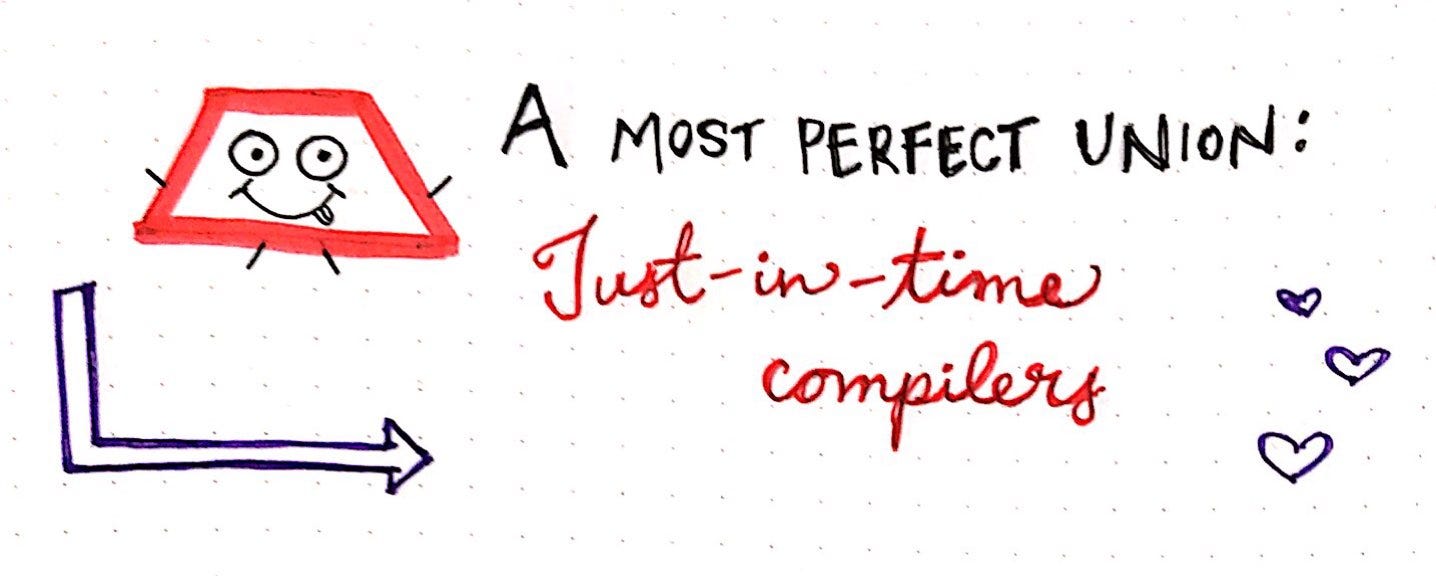 A MOST PERFECT UNION:
Just-in-time
compilers